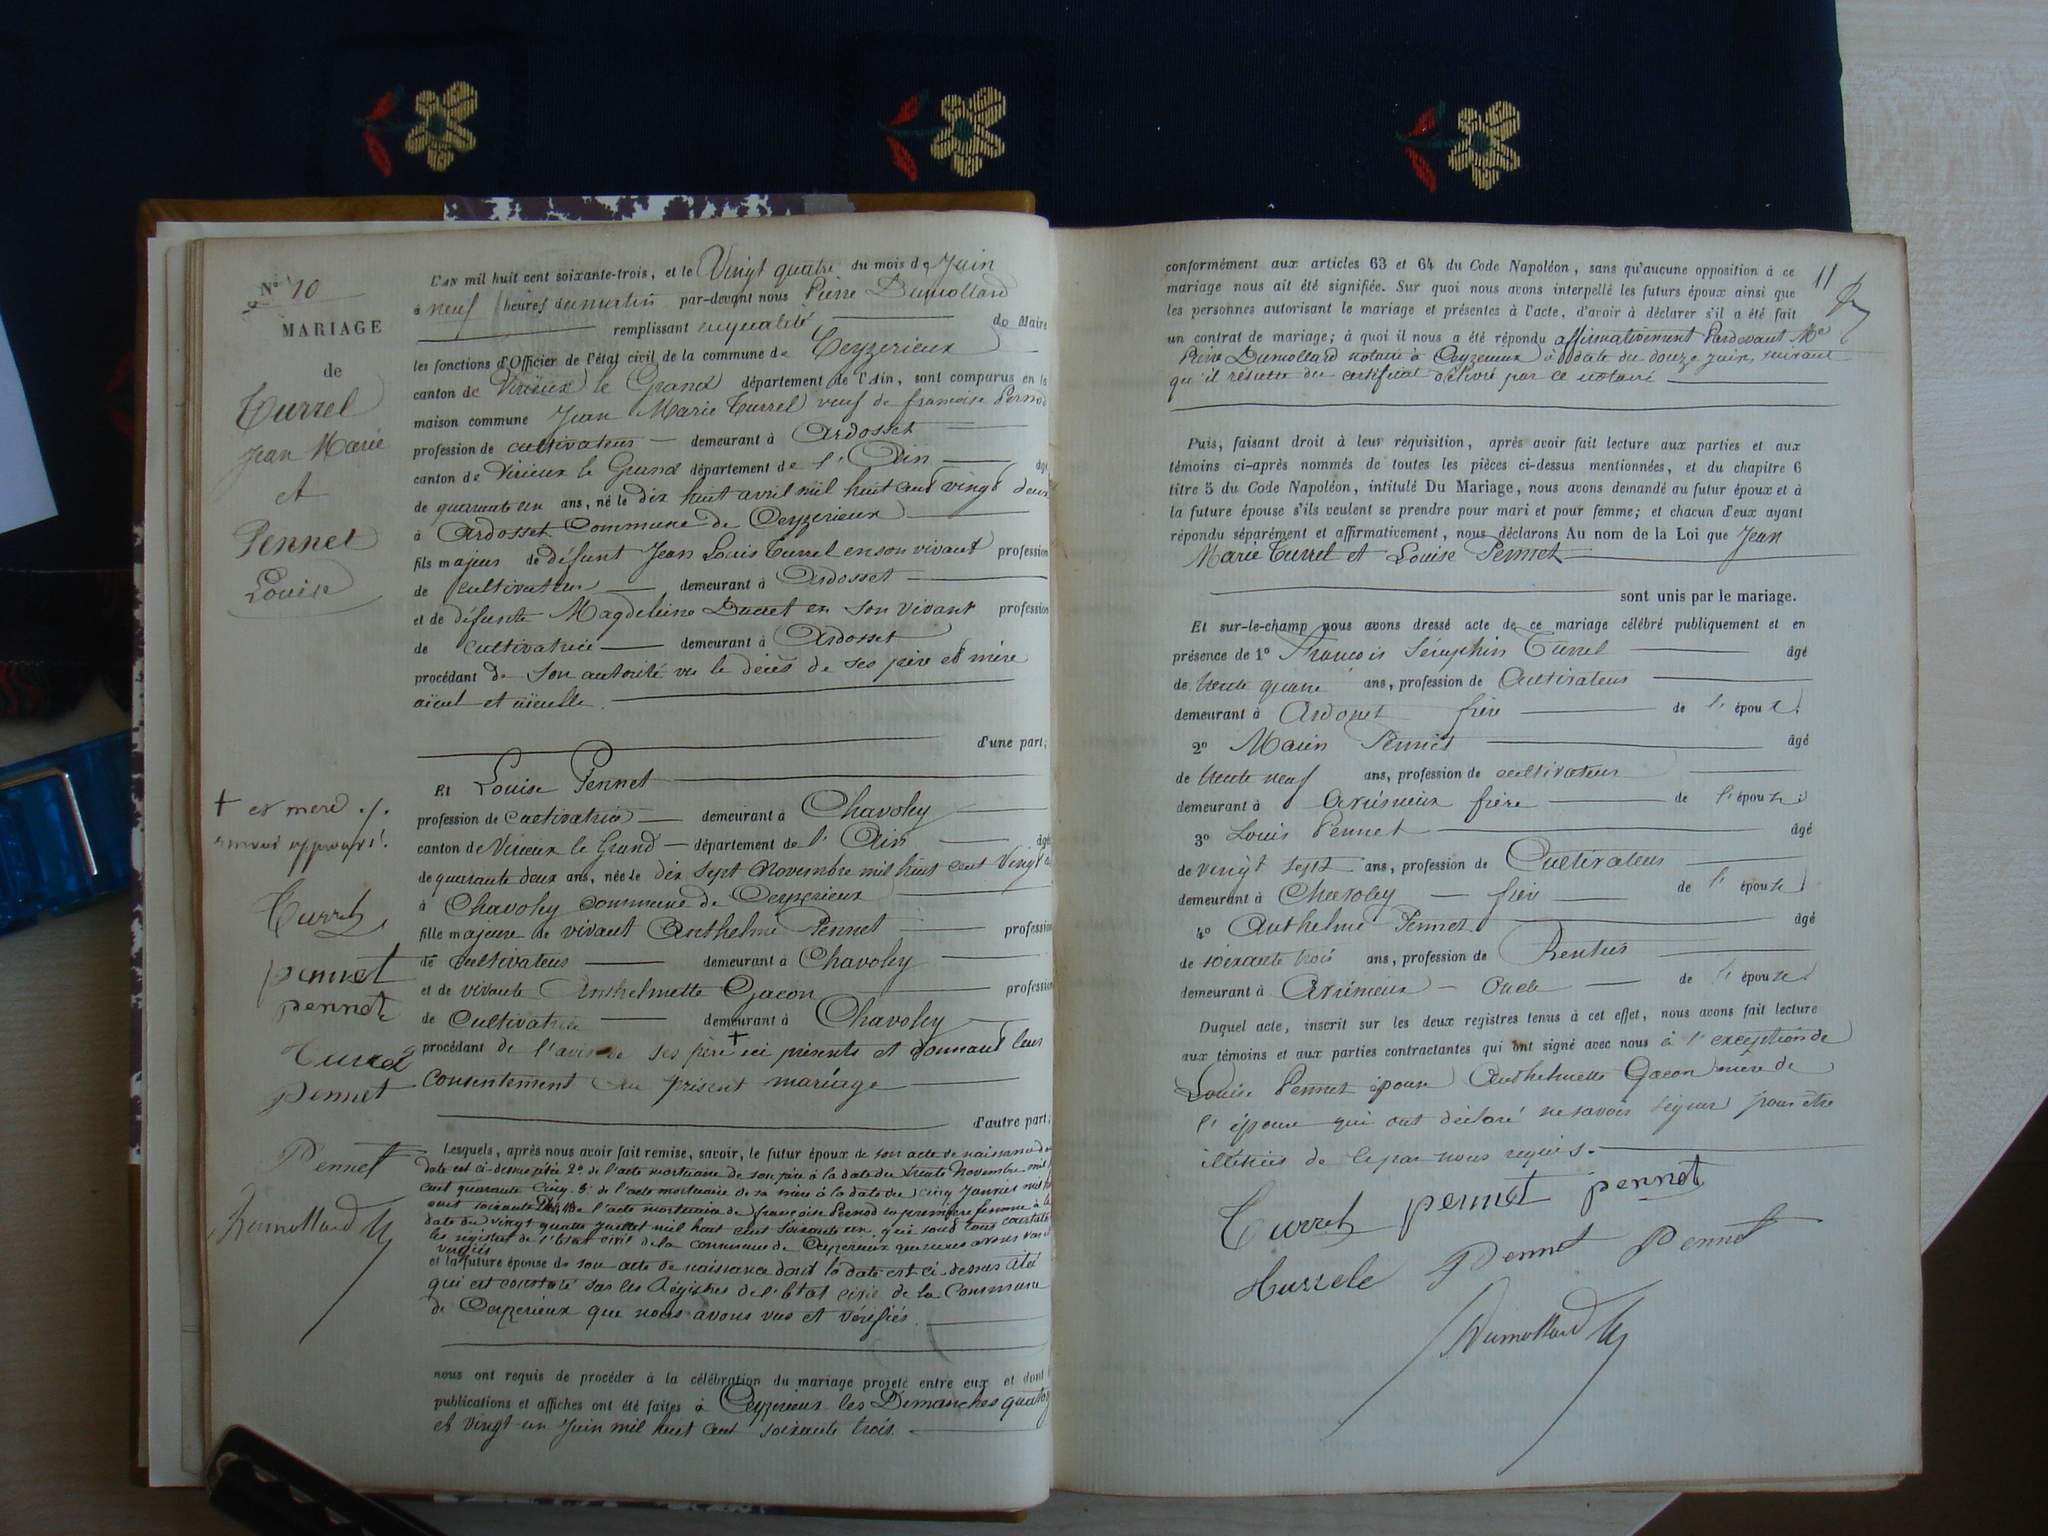 N° 10
MARIAGE
de
Turrel
Jean Marie
et
Pennet
Louise
L'AN mil huit cent soixante-trois, et le Vingt quatre du mois de Juin
à neuf heures du matin par-devant nous Pierre Dumollard
remplissant en qualité de Maire
les fonctions d'Officier de l'état civil de la commune de Ceyzerieux
canton de Virieux le Grand département de l'Ain, sont comparus en la
maison commune Jean Marie Turrel veuf de françoise Pernod
profession de cultivateur demeurant à Ardosset
canton de Virieux le Grand département de l'Ain âgé
de quarante un ans, né le dix huit avril mil huit cent vingt deux
à Ardosset Commune de Ceyzerieux
fils majeur de défunt Jean Louis Turrel en son vivant profession
de cultivateur demeurant à Ardosset
et de défunte Magdeleine Ducret en son vivant profession
de cultivatrice demeurant à Ardosset
procédant de son autorité vu le décès de ses père et mère
aïeul et aïeulle.
d'une part;
Et Louise Pennet
profession de Cultivatrice demeurant à Chavoley
canton de Virieux le Grand département de l'Ain âgée
de quarante deux ans, née le dix sept Novembre mil huit cent Vingt
à Chavoley commune de Ceyzerieux
fille majeure de vivant Anthelme Pennet profession
de cultivateur demeurant à Chavoley
et de vivante Anthelmette Gacon profession
de Cultivatrice demeurant à Chavoley
procédant de l'avis de ses père + ici présents et donnant leur
consentement au présent mariage
d'autre part;
+ et mère ./.
renvoi approuvé.
Turrel
pennet
pennet
Turrel
Pennet
Pennet
Dumollard
Lesquels, après nous avoir fait remise, savoir, le futur époux de son acte de naissance dont
date est ci-dessus citée 2° de l'acte mortuaire de son père à la date du trente Novembre mil
cent quarante cinq 3° de l'acte mortuaire de sa mère à la date du cinq Janvier mil
cent soixante de l'acte mortuaire de françoise Pernod sa première femme à la
date du vingt quatre Juillet mil huit cent soixante un qui sont tous constatés
les registres de l'Etat civil de la commune de Ceyzerieux que nous avons vus et
vérifiés
et la future épouse de son acte de naissance dont la date est ci-dessus citée
qui est constaté sur les Régistres de l'Etat civil de la Commune
de Ceyzerieux que nous avons vus et vérifiés.
nous ont requis de procéder à la célébration du mariage projeté entre eux et dont
publications et affiches ont été faites à Ceyzerieux les Dimanches quatorze
et vingt un Juin mil huit cent soixante trois.
11
conformément aux articles 63 et 64 du Code Napoléon, sans qu'aucune opposition à ce
mariage nous ait été signifiée. Sur quoi nous avons interpellé les futurs époux ainsi que
les personnes autorisant le mariage et présentes à l'acte, d'avoir à déclarer s'il a été fait
un contrat de mariage; à quoi il nous a été répondu affirmativement Pardevant Me
Pierre Dumollard notaire à Ceyzerieux à la date du douze juin, suivant
qu'il résulte du certificat délivré par ce notaire
Puis, faisant droit à leur réquisition, après avoir fait lecture aux parties et aux
témoins ci-après nommés de toutes les pièces ci-dessus mentionnées, et du chapitre 6
titre 5 du Code Napoléon, intitulé Du Mariage, nous avons demandé au futur époux et à
la future épouse s'ils veulent se prendre pour mari et pour femme; et chacun d'eux ayant
répondu séparément et affirmativement, nous déclarons Au nom de la Loi que Jean
Marie Turrel et Louise Pennet
sont unis par le mariage.
Et sur-le-champ nous avons dressé acte de ce mariage célébré publiquement et en
présence de 1° François Séraphin Turrel âgé
de trente quatre ans, profession de Cultivateur
demeurant à Ardosset frère de l'époux.
2° Marin Pennet âgé
de trente neuf ans, profession de cultivateur
demeurant à frère de l'épouse.
3° Louis Pennet âgé
de vingt sept ans, profession de Cultivateur
demeurant à Chavoley frère de l'épouse.
4° Anthelme Pennet âgé
de soixante trois ans, profession de Rentier
demeurant à Oncle de l'épouse.
Duquel acte, inscrit sur les deux registres tenus à cet effet, nous avons fait lecture
aux témoins et aux parties contractantes qui ont signé avec nous à l'exception de
Louise Pennet épouse Anthelmette Gacon mère de
l'épouse qui ont déclaré ne savoir signer pour être
illétrées de ce par nous requis.
Turrel pennet pennet
Pennet Pennet
Dumollard